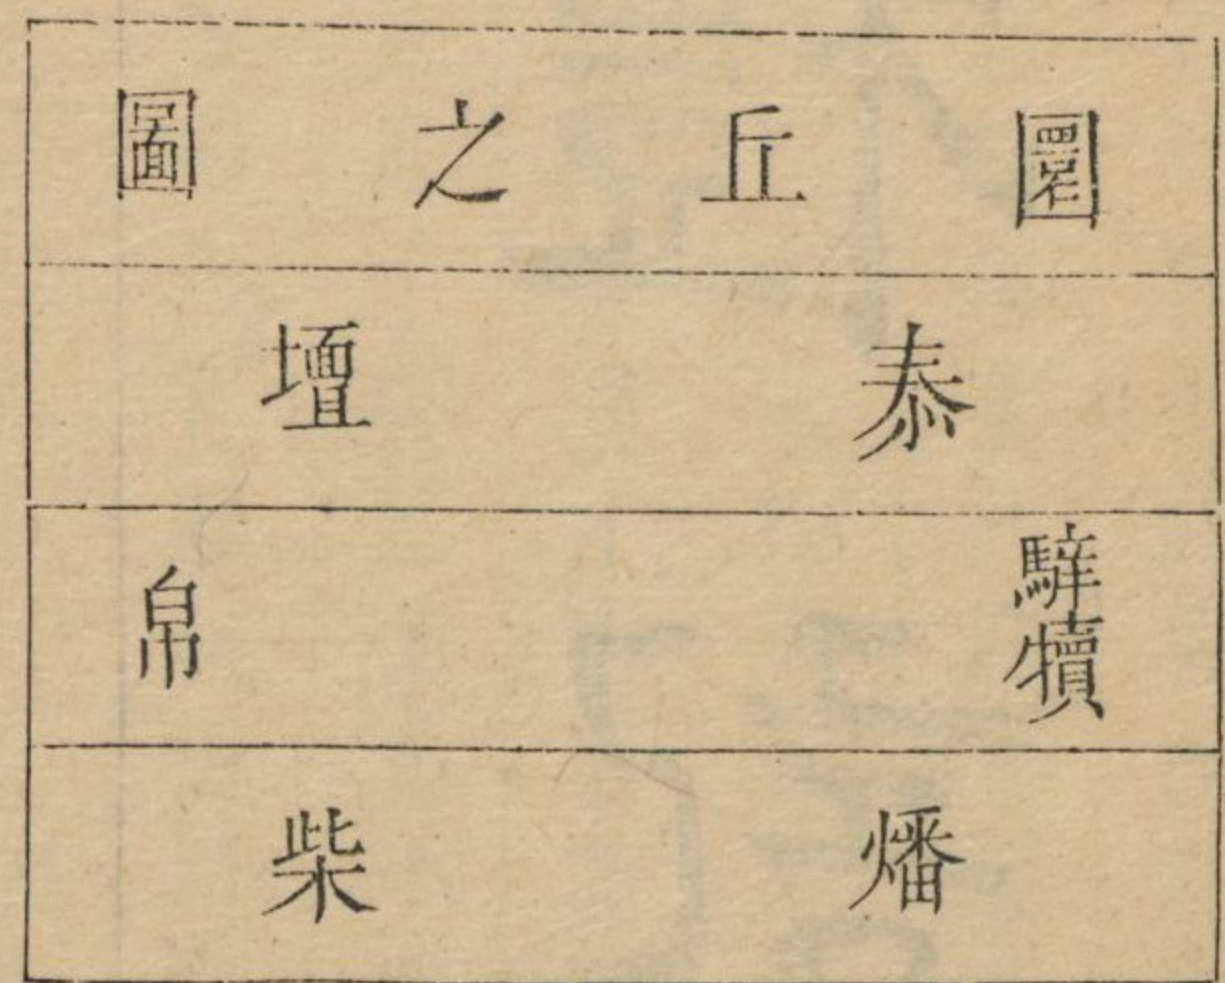 圜丘之圖
泰壇
騂犢 帛
燔柴